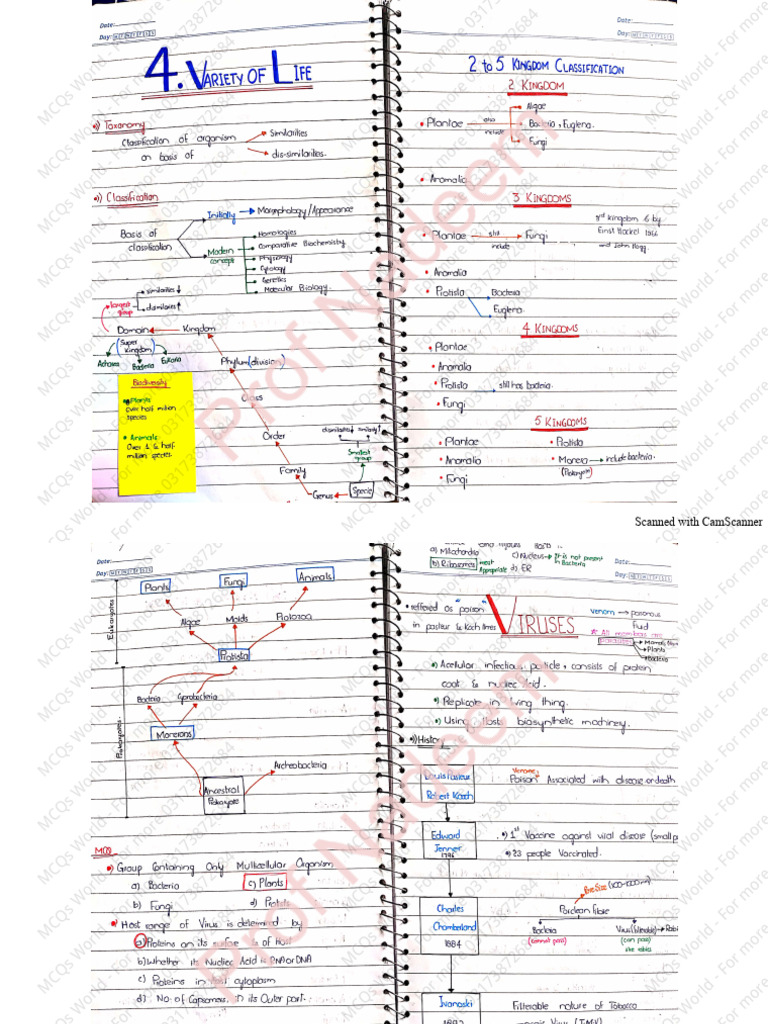 Date:
Day:
4. VARIETY OF LIFE
Taxonomy
Classification of organism
on basis of
Similarities
dis-similarities.
Classification
Basis of
classification
Initially
Morphology/Appearance
Modern
concept
Homologies
Comparative Biochemistry
Physiology
Cytology
Genetics
Molecular Biology.
largest
group
similarities ↓
dismilaries ↑
Domain
Kingdom
(Super
kingdom)
Bacteria
Eukaria
Phylum (division)
Class
Order
Family
Genus
Specie
Smallest
group
Biodiversity
Plants
Over half million
species
Animals
Over 1 & half
million species
Date:
Day:
2 to 5 KINGDOM CLASSIFICATION
2 KINGDOM
Plantae
also
include
Algae
Bacteria, Euglena.
Fungi
Anamalia
3 KINGDOMS
Plantae
still
include
Fungi
3rd kingdom & by
Ernst Hackel 1866
and John Hogg.
Anamalia
Protista
Bacteria
Euglena
4 KINGDOMS
Plantae
Anamalia
Protista
still has bacteria.
Fungi
5 KINGDOMS
Plantae
Protista
Anamalia
Monera
include bacteria.
(Prokaryote)
Fungi
Scanned with CamScanner
Date:
Day:
Plants
Fungi
Animals
Eukaryotes
Algae
Molds
Protozoa
Protista
Prokaryotes
Bacteria
Cynobacteria
Monerans
Archeobacteria
Ancestral
Prokaryote
MCQ
Group Containing Only Multicellular Organism
a) Bacteria
c) Plants
b) Fungi
d) Protists
Host range of Virus is determind by
a) Proteins on its surface & of Host
b) Whether its Nucliec Acid is DNA or DNA
c) Proteins in Host cytoplasm
d) No. of Capsomers in its Outer part.
a) Mitochondria
c) Nucleus
It is not present
in Bacteria
b) Ribosomes
most
Appropriate
d) ER
Date:
Day:
reffered as "poison"
in pasteur & Koch times
VIRUSES
venom
poisonous
fluid
Plants
Bacteria
Acellular infectious particle, consists of protein
coat & nucleic acid.
Replicate in living thing.
Using host biosynthetic machinery.
Louis Pasteur
Robert Koach
Venome
Poison Associated with disease or death
Edward
Jenner
1796
1st Vaccine against viral disease
23 people Vaccinated.
Charles
Chamberland
1884
Pore Size (100-1000nm)
Porclean filtre
Bacteria
(cannot pass)
Virus (filterable)
(can pass)
like rabies
Ivanoski
1892
Filterable nature of Tobacco
Mosaic Virus (TMV)
Prof Nadeem
MCQs World - For more 03173872684